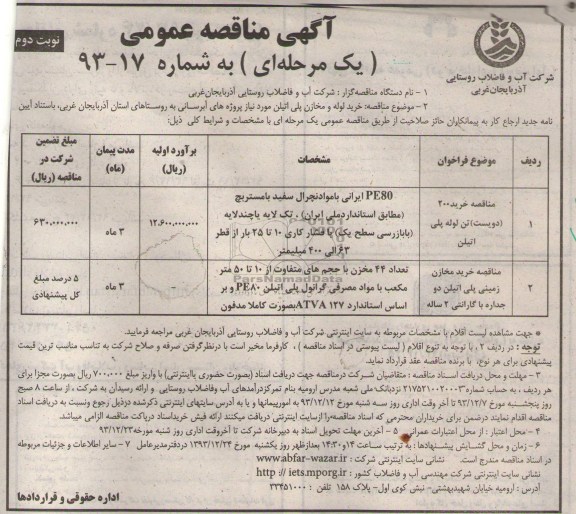 آگهی مناقصه عمومی
نوبت دوم
( یک مرحله‌ای ) به شماره ۱۷-۹۳
شرکت آب و فاضلاب روستایی
آذربایجان‌غربی
۱ - نام دستگاه مناقصه‌گزار : شرکت آب و فاضلاب روستایی آذربایجان‌غربی
۲ - موضوع مناقصه: خرید لوله و مخازن پلی اتیلن مورد نیاز پروژه های آبرسانی به روستاهای استان آذربایجان غربی، باستناد آیین
نامه جدید ارجاع کار به پیمانکاران حائز صلاحیت از طریق مناقصه عمومی یک مرحله ای با مشخصات و شرایط کلی ذیل:
ردیف
موضوع فراخوان
مشخصات
برآورد اولیه (ریال)
مدت پیمان (ماه)
مبلغ تضمین شرکت در مناقصه (ریال)
۱
مناقصه خرید ۲۰۰
(دویست) تن لوله پلی
اتیلن
PE80 ایرانی بامواد نچرال سفید بامستربچ
(مطابق استاندارد ملی ایران) ، تک لایه یا چندلایه
(با بازرسی سطح یک) با فشار کاری ۱۰ تا ۲۵ بار از قطر
۶۳ الی ۴۰۰ میلیمتر
۱۲.۶۰۰.۰۰۰.۰۰۰
۳ ماه
۶۳۰.۰۰۰.۰۰۰
۲
مناقصه خرید مخازن
زمینی پلی اتیلن دو
جداره با گارانتی ۲ ساله
تعداد ۴۴ مخزن با حجم های متفاوت از ۱۰ تا ۵۰ متر
مکعب با مواد مصرفی گرانول پلی اتیلن PE۸۰ و بر
اساس استاندارد ATVA ۱۲۷ بصورت کاملا مدفون
۳ ماه
۵ درصد مبلغ
کل پیشنهادی
ParsNamadData
جهت مشاهده لیست اقلام با مشخصات مربوطه به سایت اینترنتی شرکت آب و فاضلاب روستایی آذربایجان غربی مراجعه فرمایید.
توجه : در ردیف ۲ ، با توجه به تنوع اقلام ( لیست پیوستی در اسناد مناقصه ) ، کارفرما مخیر است با درنظرگرفتن صرفه و صلاح شرکت به تناسب مناسب ترین قیمت
پیشنهادی برای هر نوع، با برنده مناقصه عقد قرارداد نماید.
۳ - مهلت و محل دریافت اسناد مناقصه : متقاضیان شرکت درمناقصه جهت دریافت اسناد (بصورت حضوری یا اینترنتی) با واریز مبلغ ۷۰۰.۰۰۰ ریال بصورت مجزا برای
هر ردیف ، به حساب شماره ۲۱۷۵۲۱۰۰۲۰۰۰۳ نزد بانک ملی شعبه مدرس ارومیه بنام تمرکز درآمدهای آب وفاضلاب روستایی و ارائه رسیدان به شرکت ، از ساعت ۸ صبح
روز پنجشنبه مورخ ۹۳/۱۲/۷ تا آخر وقت اداری روز سه شنبه مورخ ۹۳/۱۲/۱۲ به امورپیمانها و یا به آدرس سایتهای اینترنتی ذکرشده درذیل رجوع ونسبت به دریافت اسناد
مناقصه اقدام نمایند درضمن برای خریداران محترمی که اسناد مناقصه را ازسایت اینترنتی دریافت میکنند ارائه فیش خرید اسناد دریافت مناقصه الزامی میباشد.
۴ - محل اعتبار : از محل اعتبارات عمرانی ۵ - آخرین مهلت تحویل اسناد به دبیرخانه شرکت تا آخروقت اداری روز شنبه مورخ ۹۳/۱۲/۲۳
۶ - زمان و محل گشایش پیشنهادها : به ترتیب ساعت ۱۴ و ۱۴:۳۰ بعدازظهر روز یکشنبه مورخ ۱۳۹۳/۱۲/۲۴ در دفتر مدیرعامل ۷ - سایر اطلاعات و جزئیات مربوطه
در اسناد مناقصه مندرج است. نشانی سایت اینترنتی شرکت : www.abfar-wazar.ir
نشانی سایت اینترنتی شرکت مهندسی آب و فاضلاب کشور : http :// iets.mporg.ir
آدرس : ارومیه خیابان شهیدبهشتی- نبش کوی اول- پلاک ۱۵۸ تلفن : ۳۳۴۵۱۰۰۰
اداره حقوقی و قراردادها